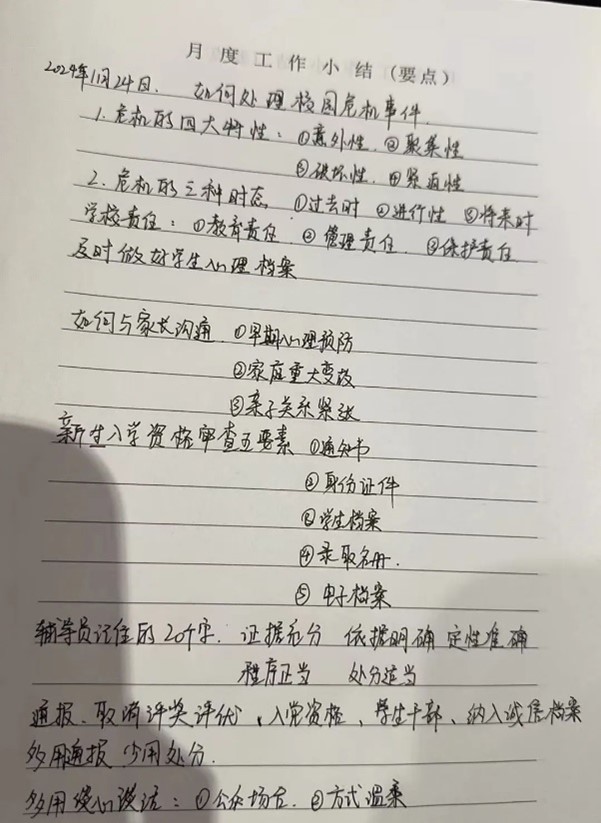 月度工作小结(要点)
2024年11月24日. 如何处理校园危机事件.
1. 危机的四大特性: ①意外性. ②聚集性
③破坏性. ④紧迫性
2. 危机的三种时态 ①过去时 ②进行性 ③将来时
学校责任: ①教育责任. ② 管理责任. ③保护责任
及时做好学生心理档案
如何与家长沟通 ①早期心理预防
②家庭重大变故
③亲子关系紧张
新生入学资格审查五要素 ①通知书
②身份证件
③学生档案
④录取名册.
⑤ 电子档案
辅导员记住的20个字. 证据充分 依据明确 定性准确
程序正当 处分适当
通报、取消评奖评优、入党资格、学生干部、纳入诚信档案
多用通报 少用处分.
多用谈心谈话: ①公众场合. ②方式温柔